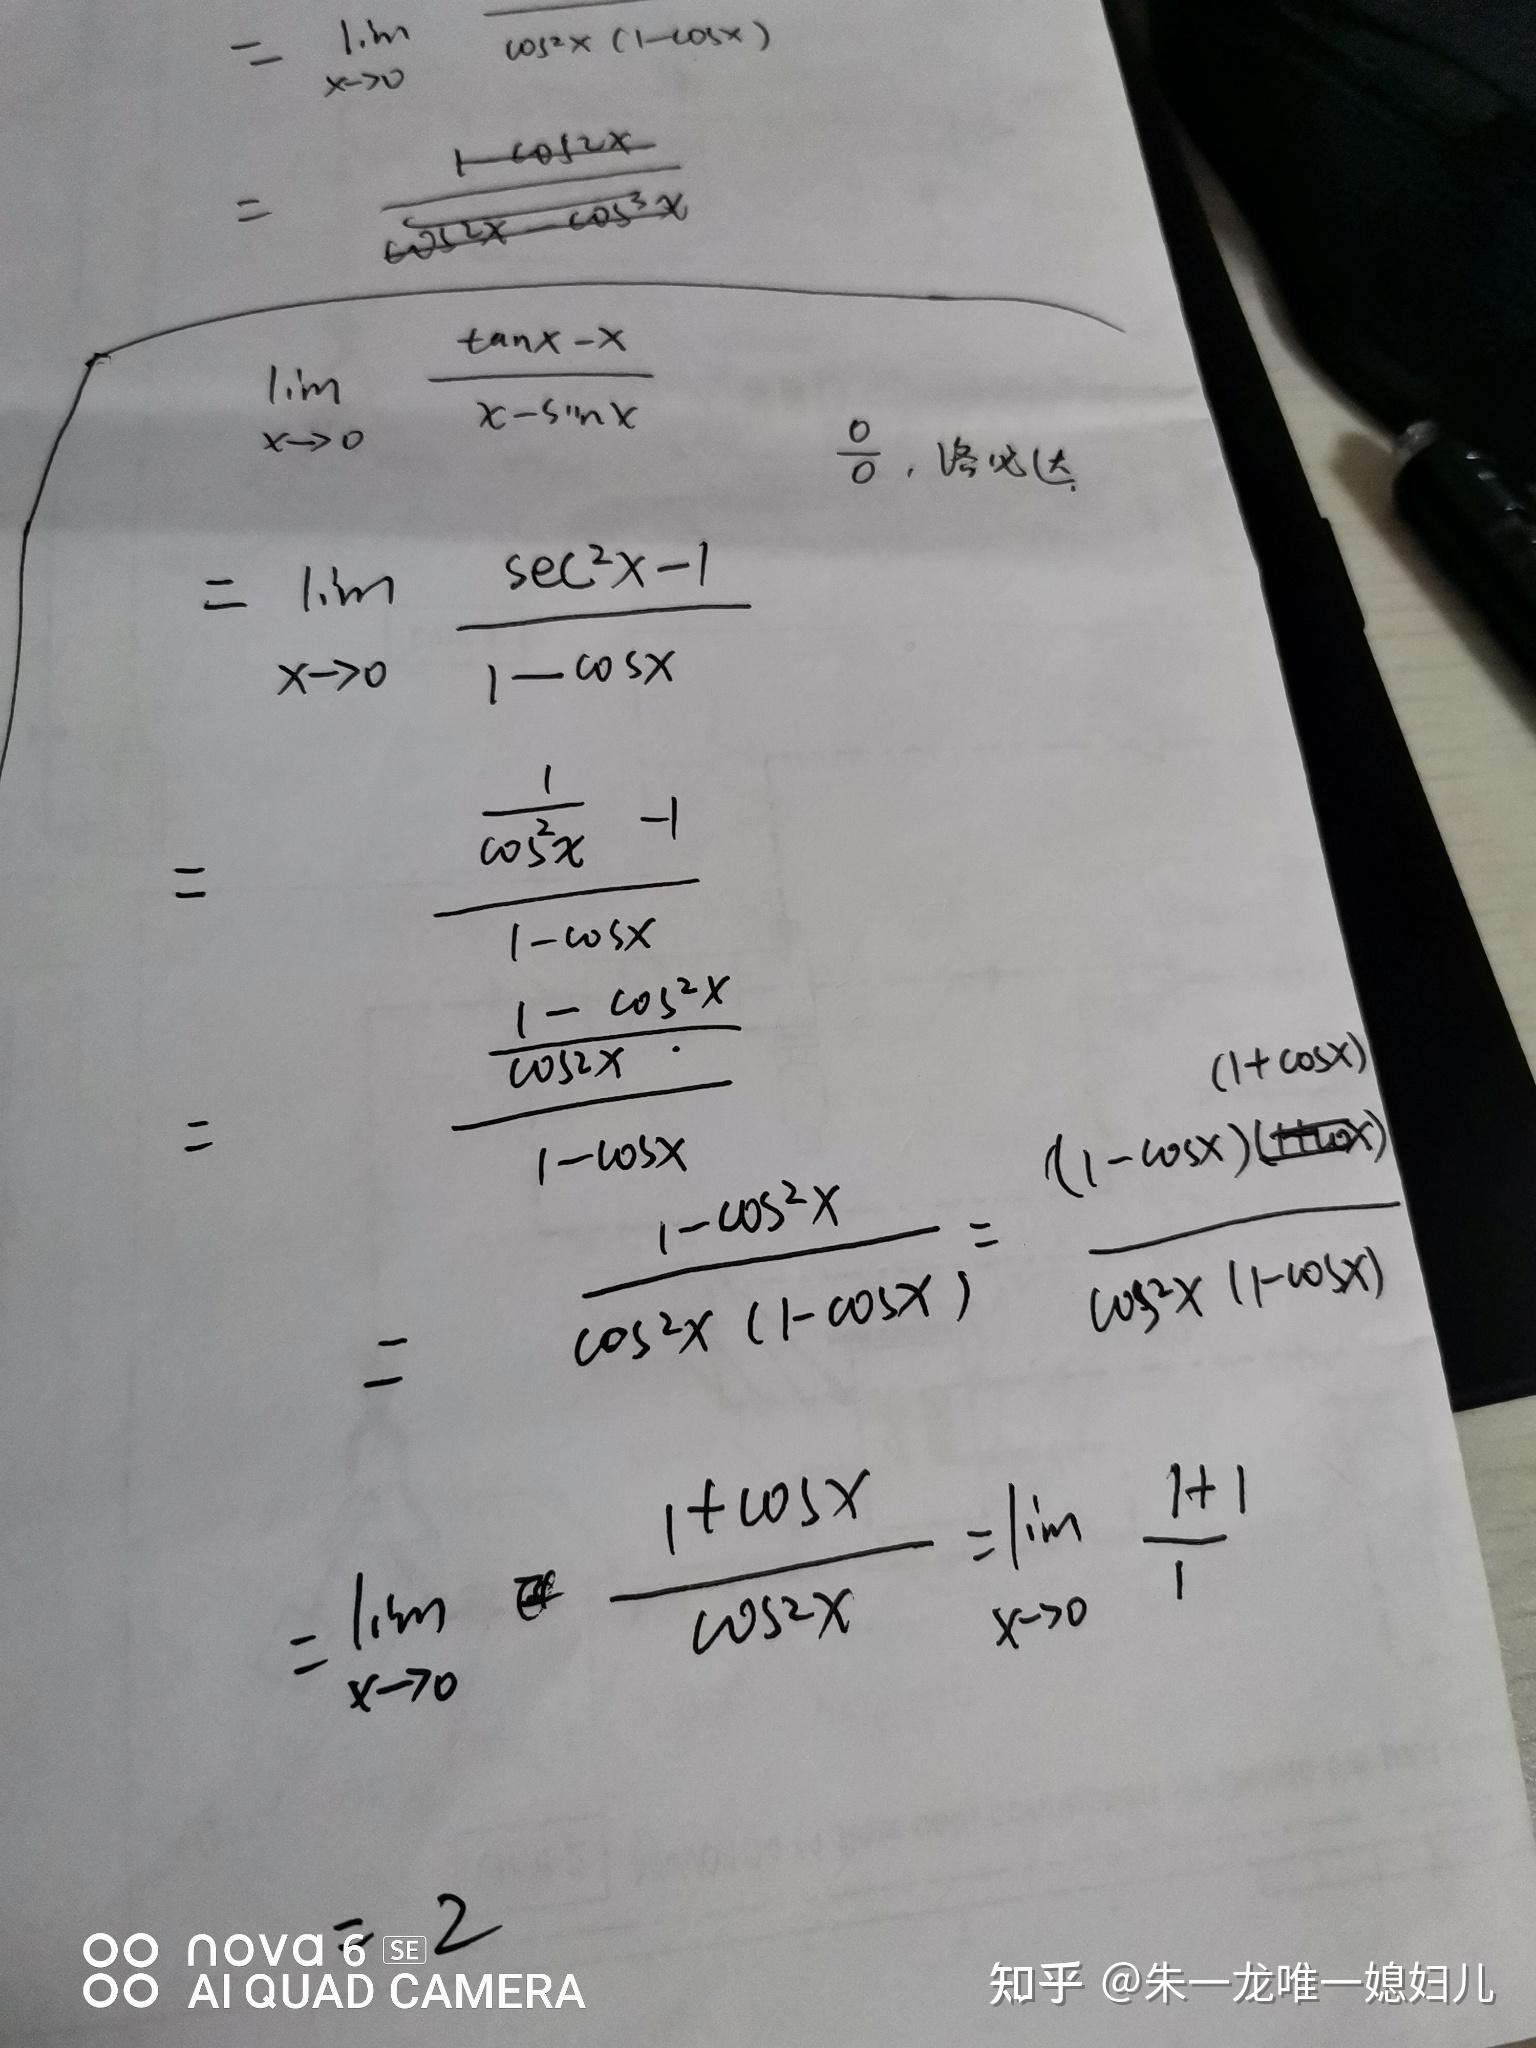 = lim x→0 ―― cos²x (1-cosx)
= 1-cos2x / cos²x - cos³x
lim x→0 tanx-x / x-sinx
0/0 , 洛必达.
= lim x→0 sec²x-1 / 1-cosx
= 1/cos²x -1 / 1-cosx
= 1-cos²x / cos2x / 1-cosx
= 1-cos²x / cos²x (1-cosx) = (1-cosx)(1+cosx) / cos²x (1-cosx)
= lim x→0 1+cosx / cos2x = lim x→0 1+1 / 1
= 2
nova 6 SE
AI QUAD CAMERA
知乎 @朱一龙唯一媳妇儿